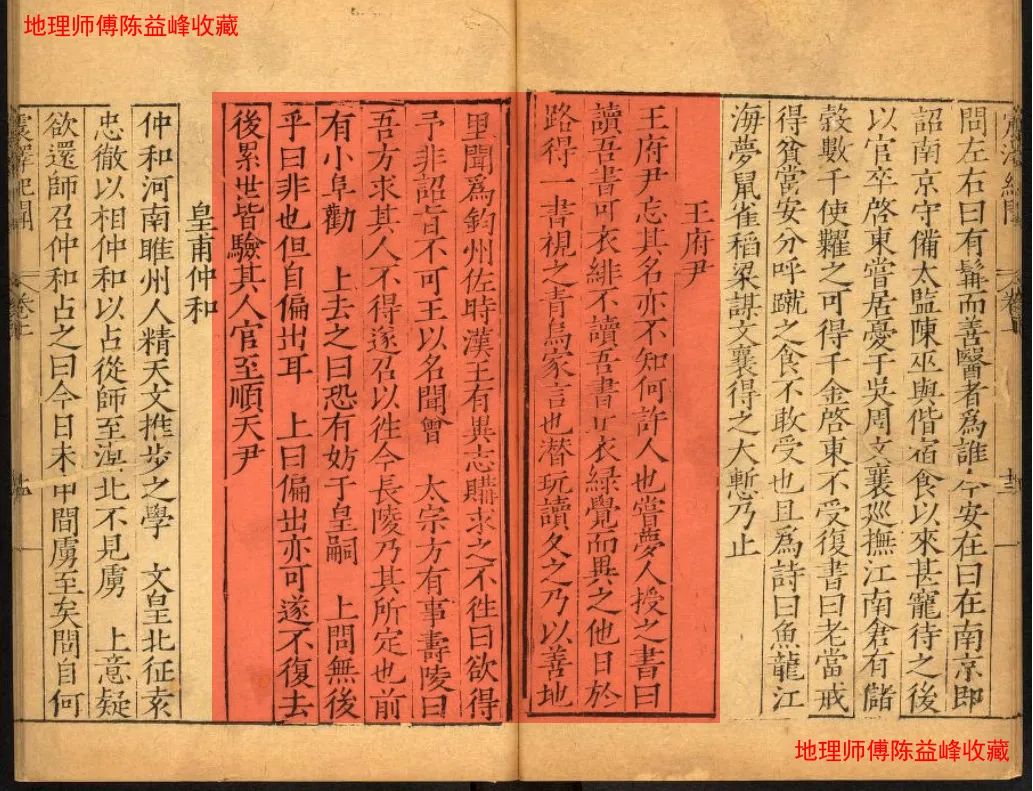 地理师傅陈益峰收藏
問左右曰有髯而善醫者爲誰今安在曰在南京即
詔南京守備太監陳巫與偕宿食以來甚寵待之後
以官卒啓東嘗居憂于吳周文襄廵撫江南倉有儲
穀數千使糶之可得千金啓東不受復書曰老當戒
得貧當安分呼蹴之食不敢受也且爲詩曰魚龍江
海夢鼠雀稻梁謀文襄得之大慙乃止
王府尹
王府尹忘其名亦不知何許人也嘗夢人授之書曰
讀吾書可衣緋不讀吾書止衣綠覺而異之他日於
路得一書視之青烏家言也潛玩讀久之乃以善地
里聞爲鈞州佐時漢王有異志購求之不徃曰欲得
予非詔旨不可王以名聞曾 太宗方有事壽陵曰
吾方求其人不得遂召以徃今長陵乃其所定也前
有小阜勸 上去之曰恐有妨于皇嗣 上問無後
乎曰非也但自偏出耳 上曰偏出亦可遂不復去
後累世皆驗其人官至順天尹
皇甫仲和
仲和河南睢州人精天文推步之學 文皇北征袁
忠徹以相仲和以占從師至漠北不見虜 上意疑
欲還師召仲和占之曰今日未申間虜至矣問自何
震澤紀聞
卷二
地理师傅陈益峰收藏